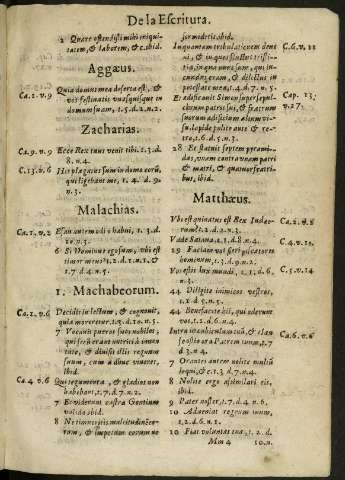 De la Escritura.
2 Quare ostendisti mihi iniqui-
tatem, & laborem, t. 2. ibid.
Aggæus.
Ca. 1. v. 9
Quia domus mea deserta est, &
vos festinatis unusquisque in
domum suam, 1. 5. d. 2. n. 2.
Zacharias.
Ca. 9. v. 9
Ecce Rex tuus venit tibi. 1. 3. d.
8. n. 4.
C. 13. v. 6
His plagatus sum in domo eorũ,
qui ligebant me, 1. 4. d. 9.
n. 3.
Malachias.
Ca. 1. v. 2
Esau autem odio habui, 1. 3. d.
10. n. 3.
6 Si Dominus ego sum, ubi est
timor meus? 1. 2. d. 1. n. 1, &
1. 7. d. 4. n. 5.
1. Machabeorum.
Ca. 1. v. 6
Decidit in lectum, & cognovit,
quia moreretur. 1. 3. d. 10. n. 5.
7 Vocavit pueros suos nobiles,
qui secũ erant nutriti à iuuen
tute, & divisit illis regnum
suum, cum adhuc viueret,
ibid.
Ca. 4. v. 6
Qui tegumenta, & gladios non
habebant, 1. 7. d. 7. n. 2.
7 Et viderunt castra Gentium
valida ibid.
8 Ne timueritis multitudinẽ eo-
rum, & impetum eorum ne
formidetis. ibid.
C. 6. v. 11
In quantam tribulationem deue
ni, & in quos fluctus tristi-
tiæ, in qua nunc sum, qui in-
cundus eram, & dilectus in
potestate mea, 1. 4. d. 7. n. 5.
Cap. 13.
v. 27.
Et ædificauit Simon super sepul-
chrum patris sui, & fratrum
suorum ædificium altum vi-
su, lapide polito ante & re-
tro, 1. 6. d. 5. n. 3.
28 Et statuit septem pyrami-
das, unam contra unam patri
& matri, & quatuor fratri-
bus, ibid.
Matthæus.
Ca. 2. v. 8
Ubi est qui natus est Rex Iudæo-
rum? 1. 2. d. 2. n. 3.
Ca. 4. v. 10.
Vade Satana. 1. 3. d. 8. n. 4.
19 Faciam vos fieri piscatores
hominum, 1. 3. d. 9. n. 2.
C. 5. v. 14
Vos estis lux mundi, 1. 1. d. 6.
n. 3.
44 Diligite inimicos vestros,
1. 1. d. 5. n. 5.
44 Benefacite his, qui oderunt
vos, 1. 1. d. 6. n. 2.
Ca. 6. v. 6
Intra in cubiculum tuũ, & clau
so ostio ora Patrem tuum, 1. 7
d. 3. n. 4.
7 Orantes autem nolite multũ
loqui, & t. 1. 3. d. 7. n. 4.
8 Nolite ergo assimilari eis,
ibid.
9 Pater noster, 1. 7. d. 4. n. 6.
10 Adueniat regnum tuum,
1. 2. d. 6. n. 1.
10 Fiat voluntas tua, 1. 2. d.
Mm 4 10. n.